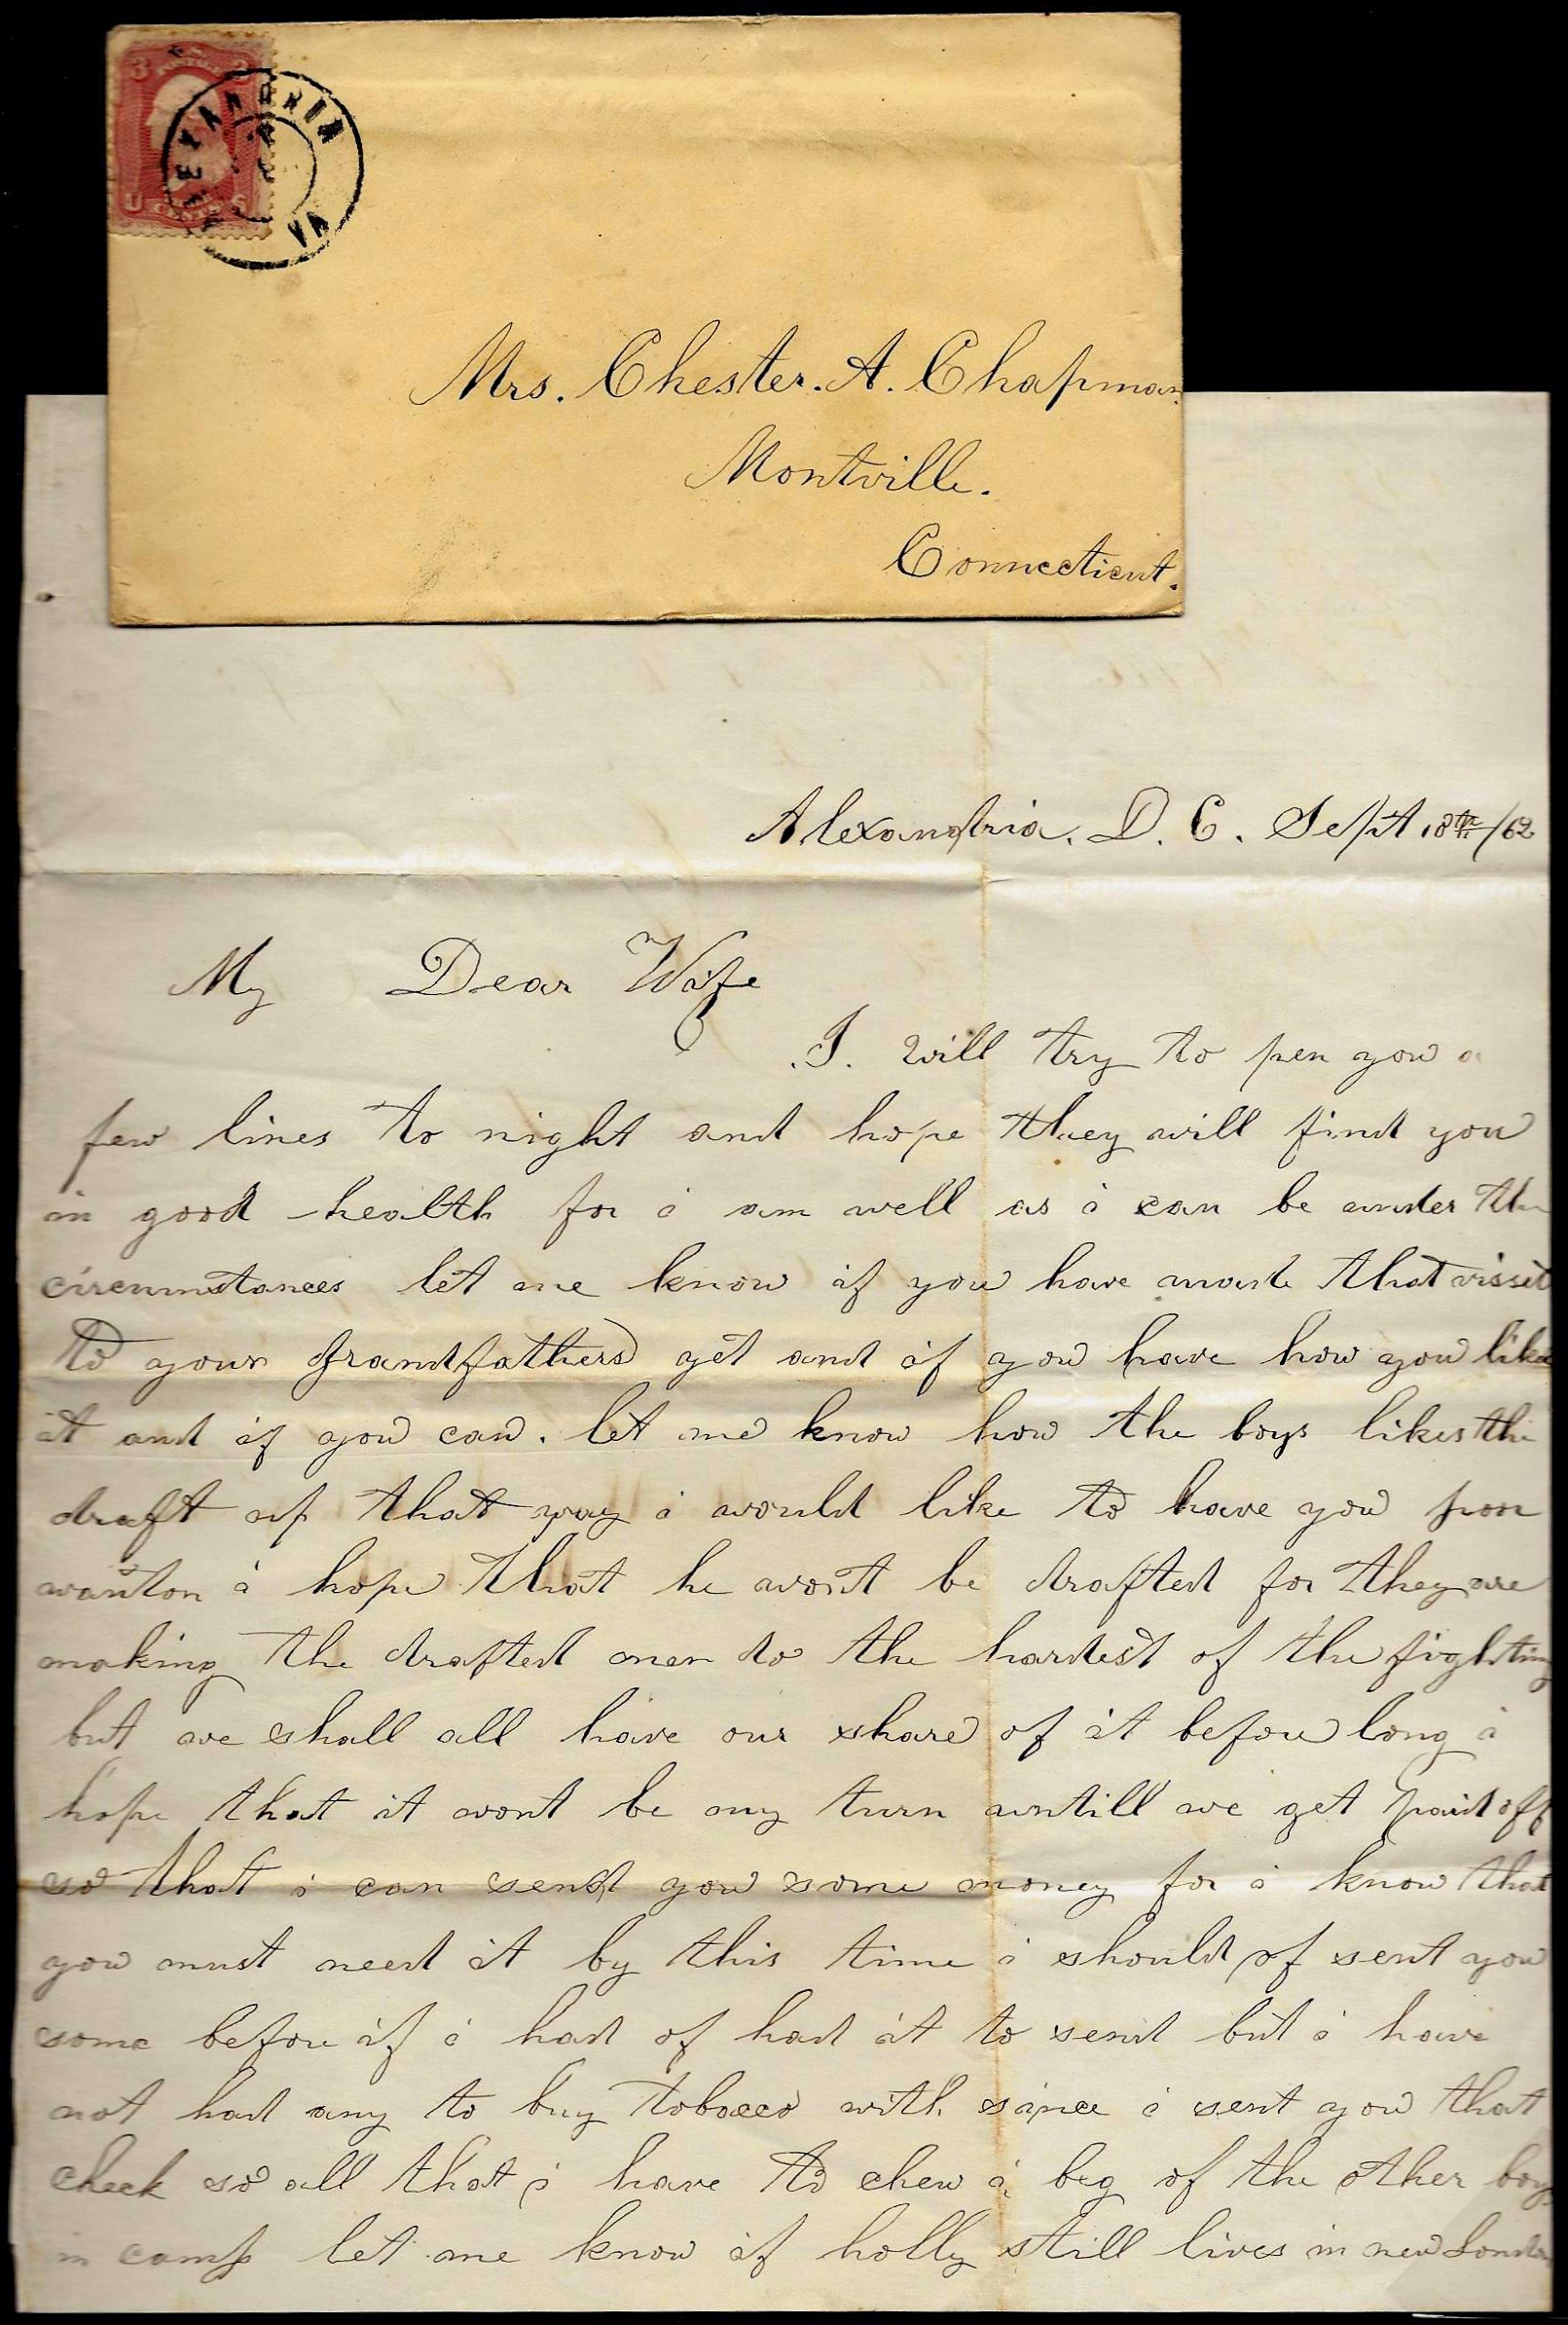 3 3
U CENTS S
ALEXANDRIA
VA
Mrs. Chester. A. Chapman
Montville.
Connecticut.
Alexandria. D. C. Sept 18th/62
My Dear Wife
.I. will try to pen you a
few lines to night and hope they will find you
in good health for i am well as i can be under the
circumstances let me know if you have made that vissit
to your Grandfathers yet and if you have how you like
it and if you can. let me know how the boys likes the
draft up that way i would like to have you
i hope that he wont be drafted for they are
making the drafted men do the hardest of the fighting
but we shall all have our share of it before long i
hope that it wont be my turn untill we get paid off
so that i can send you some money for i know that
you must need it by this time i should of sent you
some before if i had of had it to send but i have
not had any to buy tobacco with since i sent you that
check so all that i have to chew i beg of the other boys
in camp let me know if holly still lives in new London